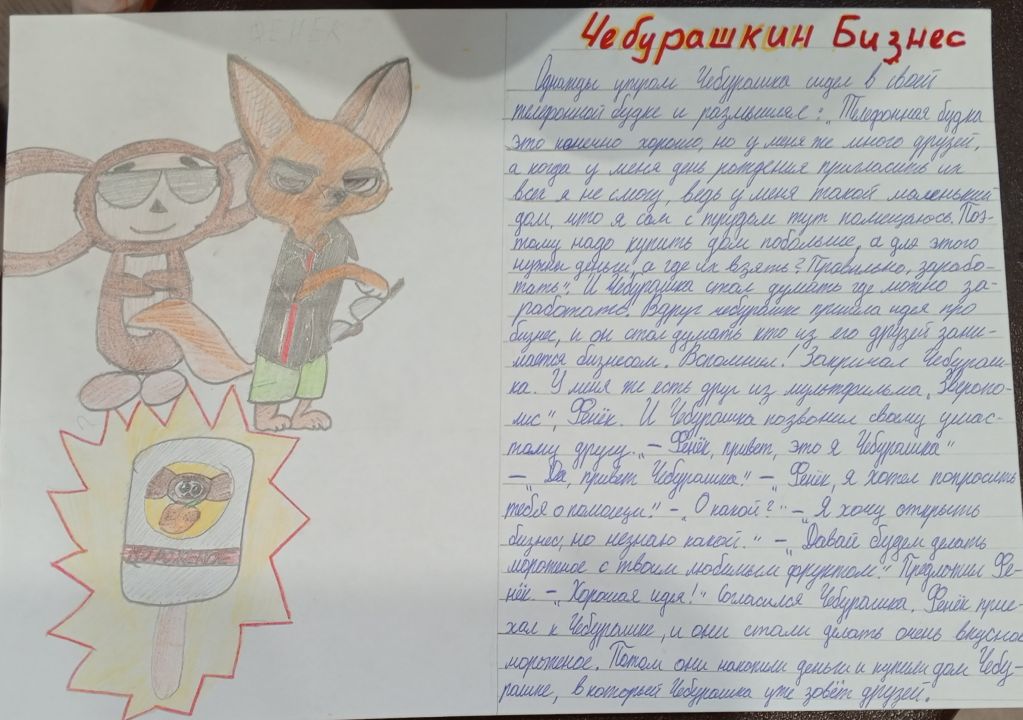 ФЕНЕК
Чебурашкин Бизнес
Однажды утром Чебурашка сидел в своей
телефонной будке и размышлял: „Телефонная будка
это конечно хорошо, но у меня же много друзей,
а когда у меня день рождения пригласить их
всех я не смогу, ведь у меня такой маленький
дом, что я сам с трудом тут помещаюсь. Поэ-
тому надо купить дом побольше, а для этого
нужны деньги, а где их взять? Правильно, зарабо-
тать“. И Чебурашка стал думать где можно за-
работать. Вдруг чебурашке пришла идея про
бизнес, и он стал думать кто из его друзей зани-
мается бизнесом. Вспомнил! Закричал Чебураш-
ка. У меня же есть друг из мультфильма „Зверопо-
лис“, Фенёк. И Чебурашка позвонил своему ушас-
тому другу. – Фенёк, привет, это я Чебурашка“
–„Да, привет Чебурашка.“ –„Фенёк, я хотел попросить
тебя о помощи.“ –„О какой?“ –„Я хочу открыть
бизнес, но незнаю какой.“ –„Давай будем делать
мороженое с твоим любимым фруктом.“ Предложил Фе-
нёк. –„Хорошая идея!“ Согласился Чебурашка. Фенёк прие-
хал к Чебурашке, и они стали делать очень вкусное
мороженое. Потом они накопили деньги и купили дом Чебу-
рашке, в который Чебурашка уже зовёт друзей.